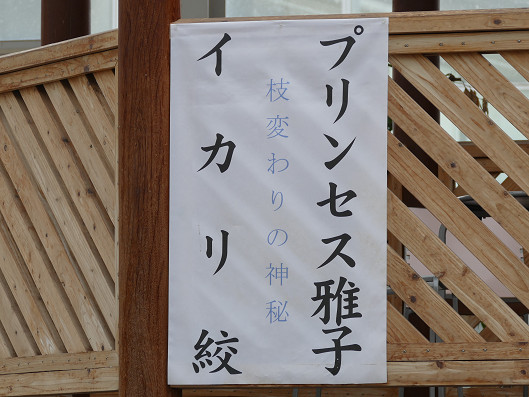 プリンセス雅子
枝変わりの神秘
イカリ絞